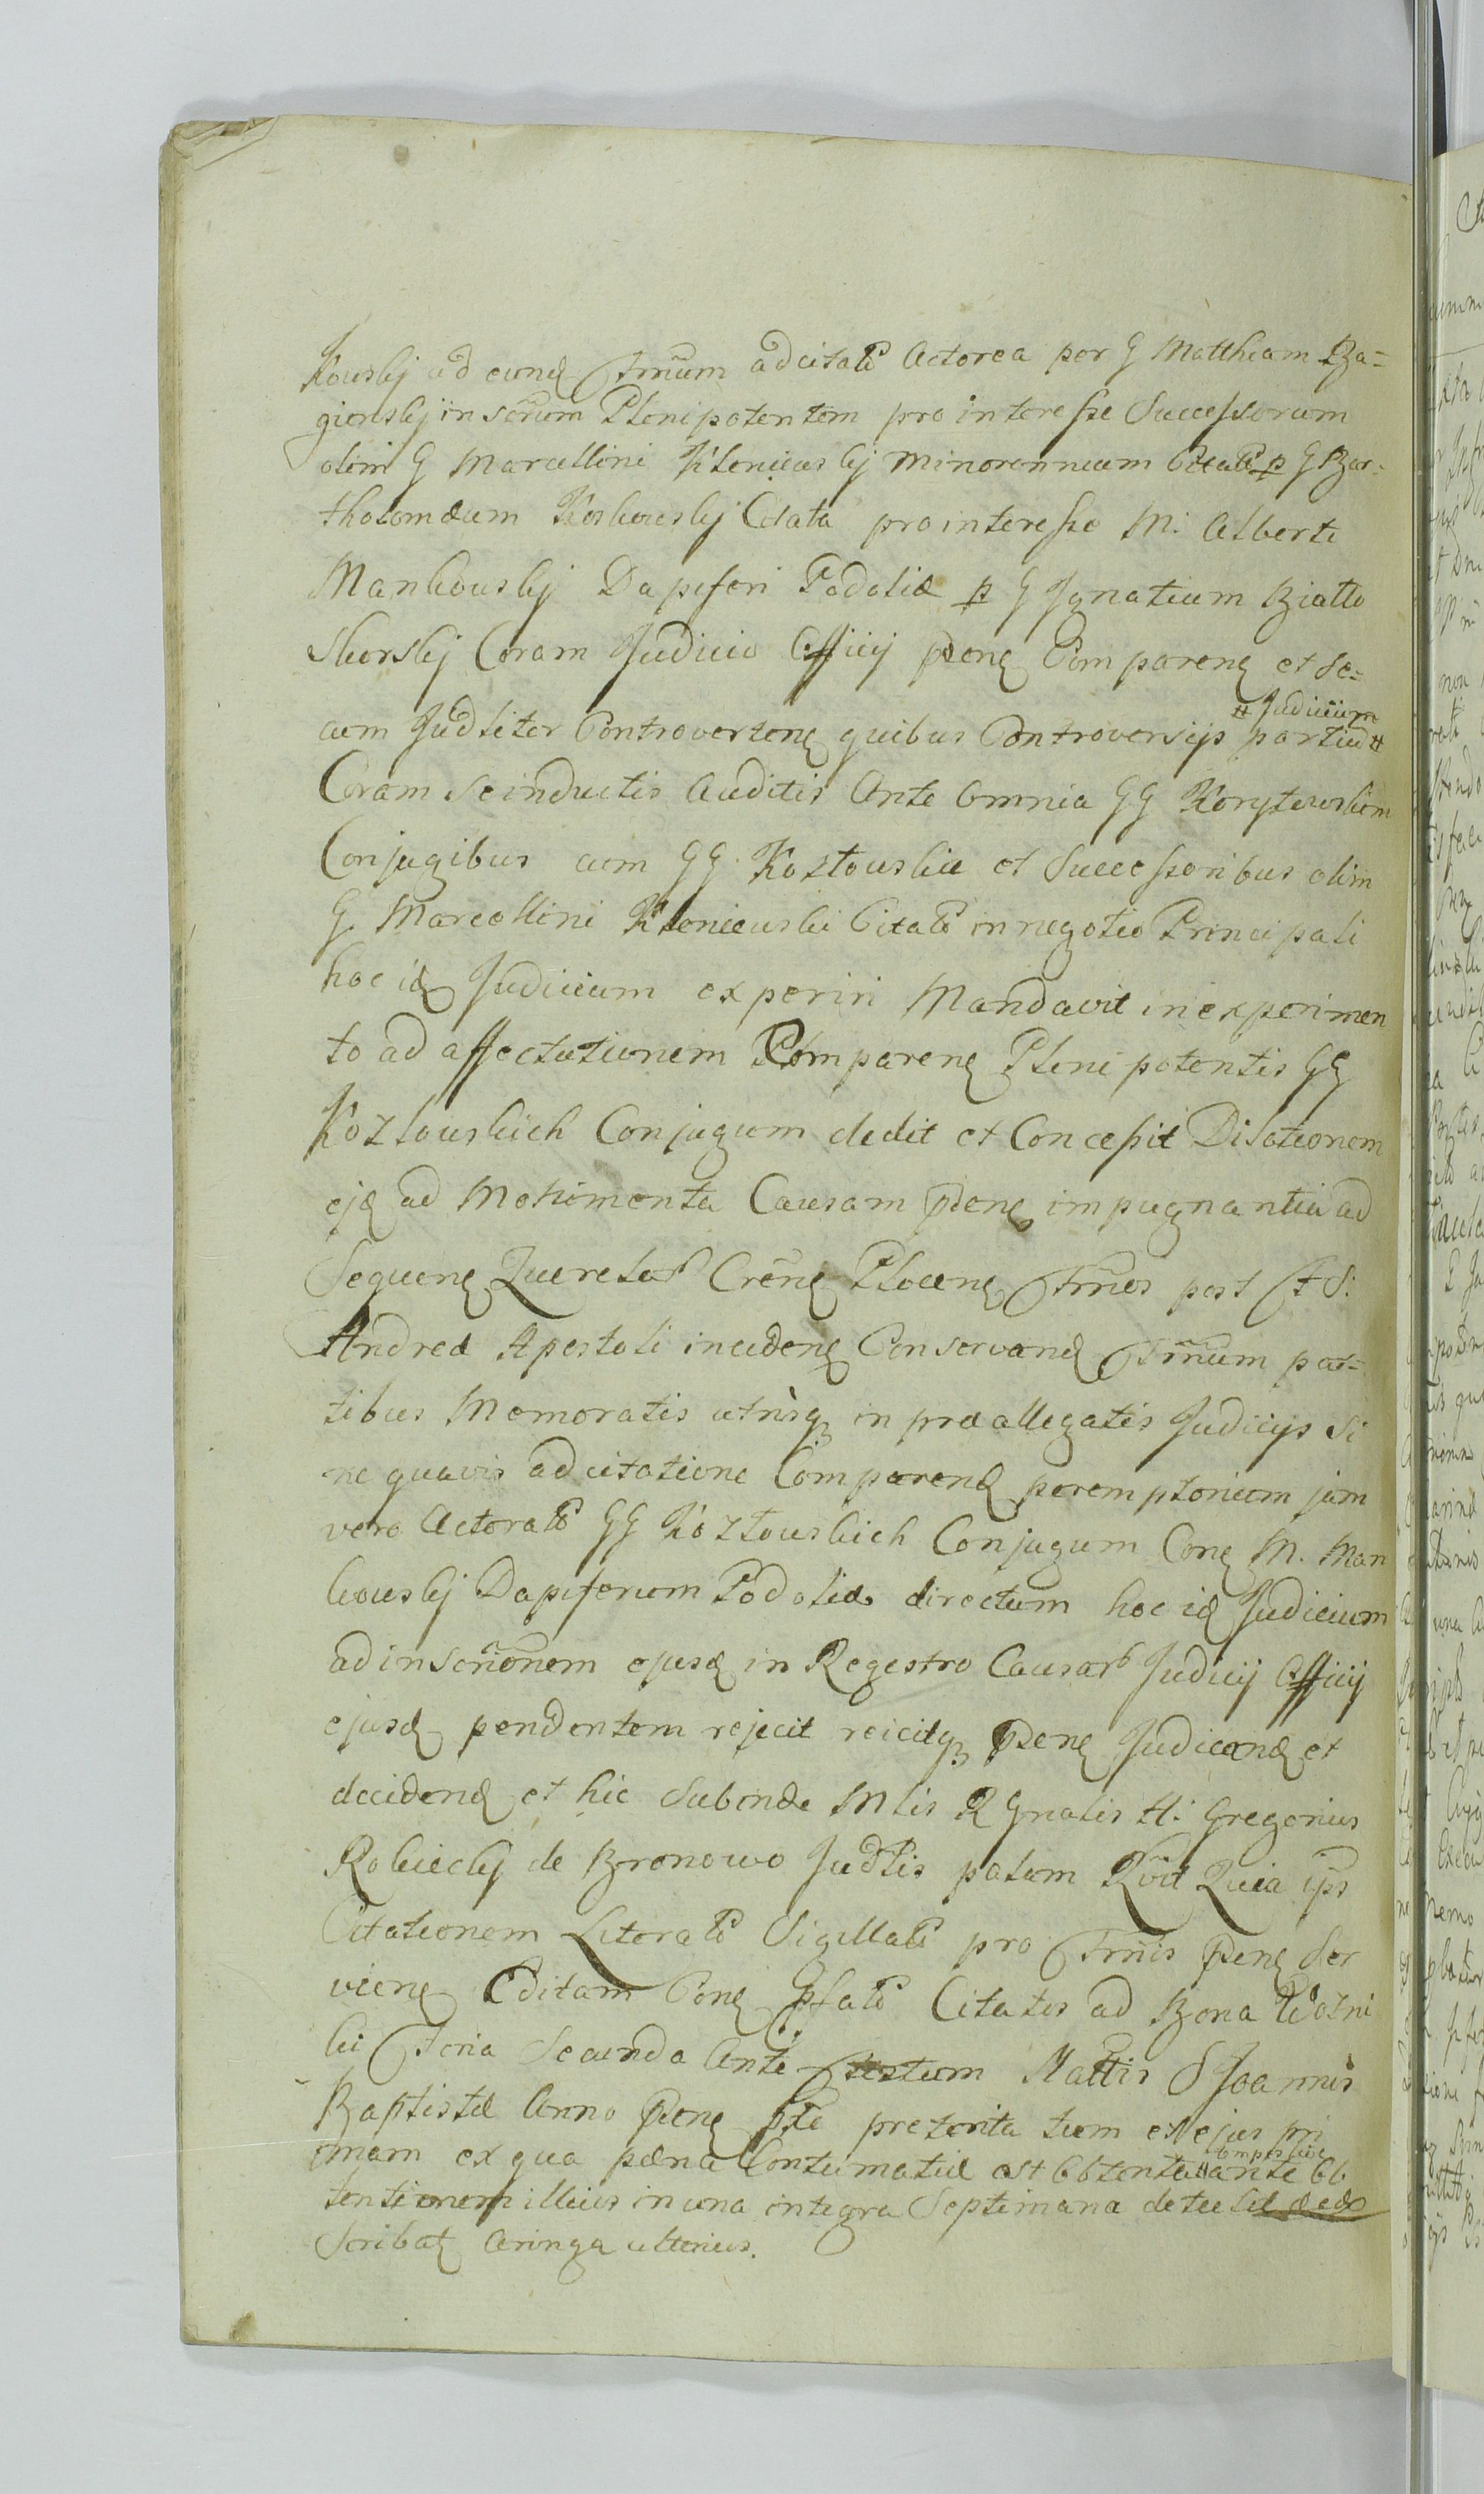 kowskj ad eund Trnum adcitato Actorea per G Mattheam Za=
gienskj in scrum Plenipotentem pro interesse Successorum
olim G Marcellini Kleniewskj minorennium Citato p G Bar-
tholomæum Koskowskj Citata pro interesse M: Alberti
Mankowskj Dapiferi Podoliæ p G Ignatium Biallo
skorskj Coram Judicio Officij præns Comparens et se=
cum Judliter Controvertens quibus Controversijs partium #
# Judicium
Coram se inductis Auditis Ante Omnia GG Korytowskim
Conjugibus cum GG Kozłowskie et Successoribus olim
G. Marcellini Kleniewski Citato in negotio Principali
hoc id Judicium experiri Mandavit in experimen
to ad affectationem Comparens Plenipotentis GG
Kozłowskich Conjugum dedit et Concessit Dilationem
ejd ad Motimenta Causam præns impugnantia ad
Sequens Querelar Crens Plocens Trnos post F S:
Andreæ Apostoli incidens Conservand Trnum par=
tibus Memoratis utrisq in præallegatis Judicijs si
ne quavis adcitatione Comparend peremptorium jam
vero Actorato GG Kozłowskich Conjugum Cons M. Man
kowskj Dapiferum Podoliæ directum hoc id Judicium
ad inscrionem ejusd in Regestro Causar Judicij Officij
ejusd pendentem rejecit reicitq præns Judicand et
decidend et hic subinde Mlis R Gnalis H: Gregorius
Rokickj de Bronowo Judlis palam Rvit Quia ips
Citationem Literato Sigillato pro Trnis præns Ser
viens Editam Cons pfato Citatos ad Bona Woźni
ki Feria Secunda Ante Festum Nattis S Joannis
Baptistæ Anno præns pte preterita tum et ejus pri
mam ex qua pæna Contumatiæ est Obtenta # ante Ob
tentionem illius in una integra Septimana detulit
Scribat Aringa ulterius.